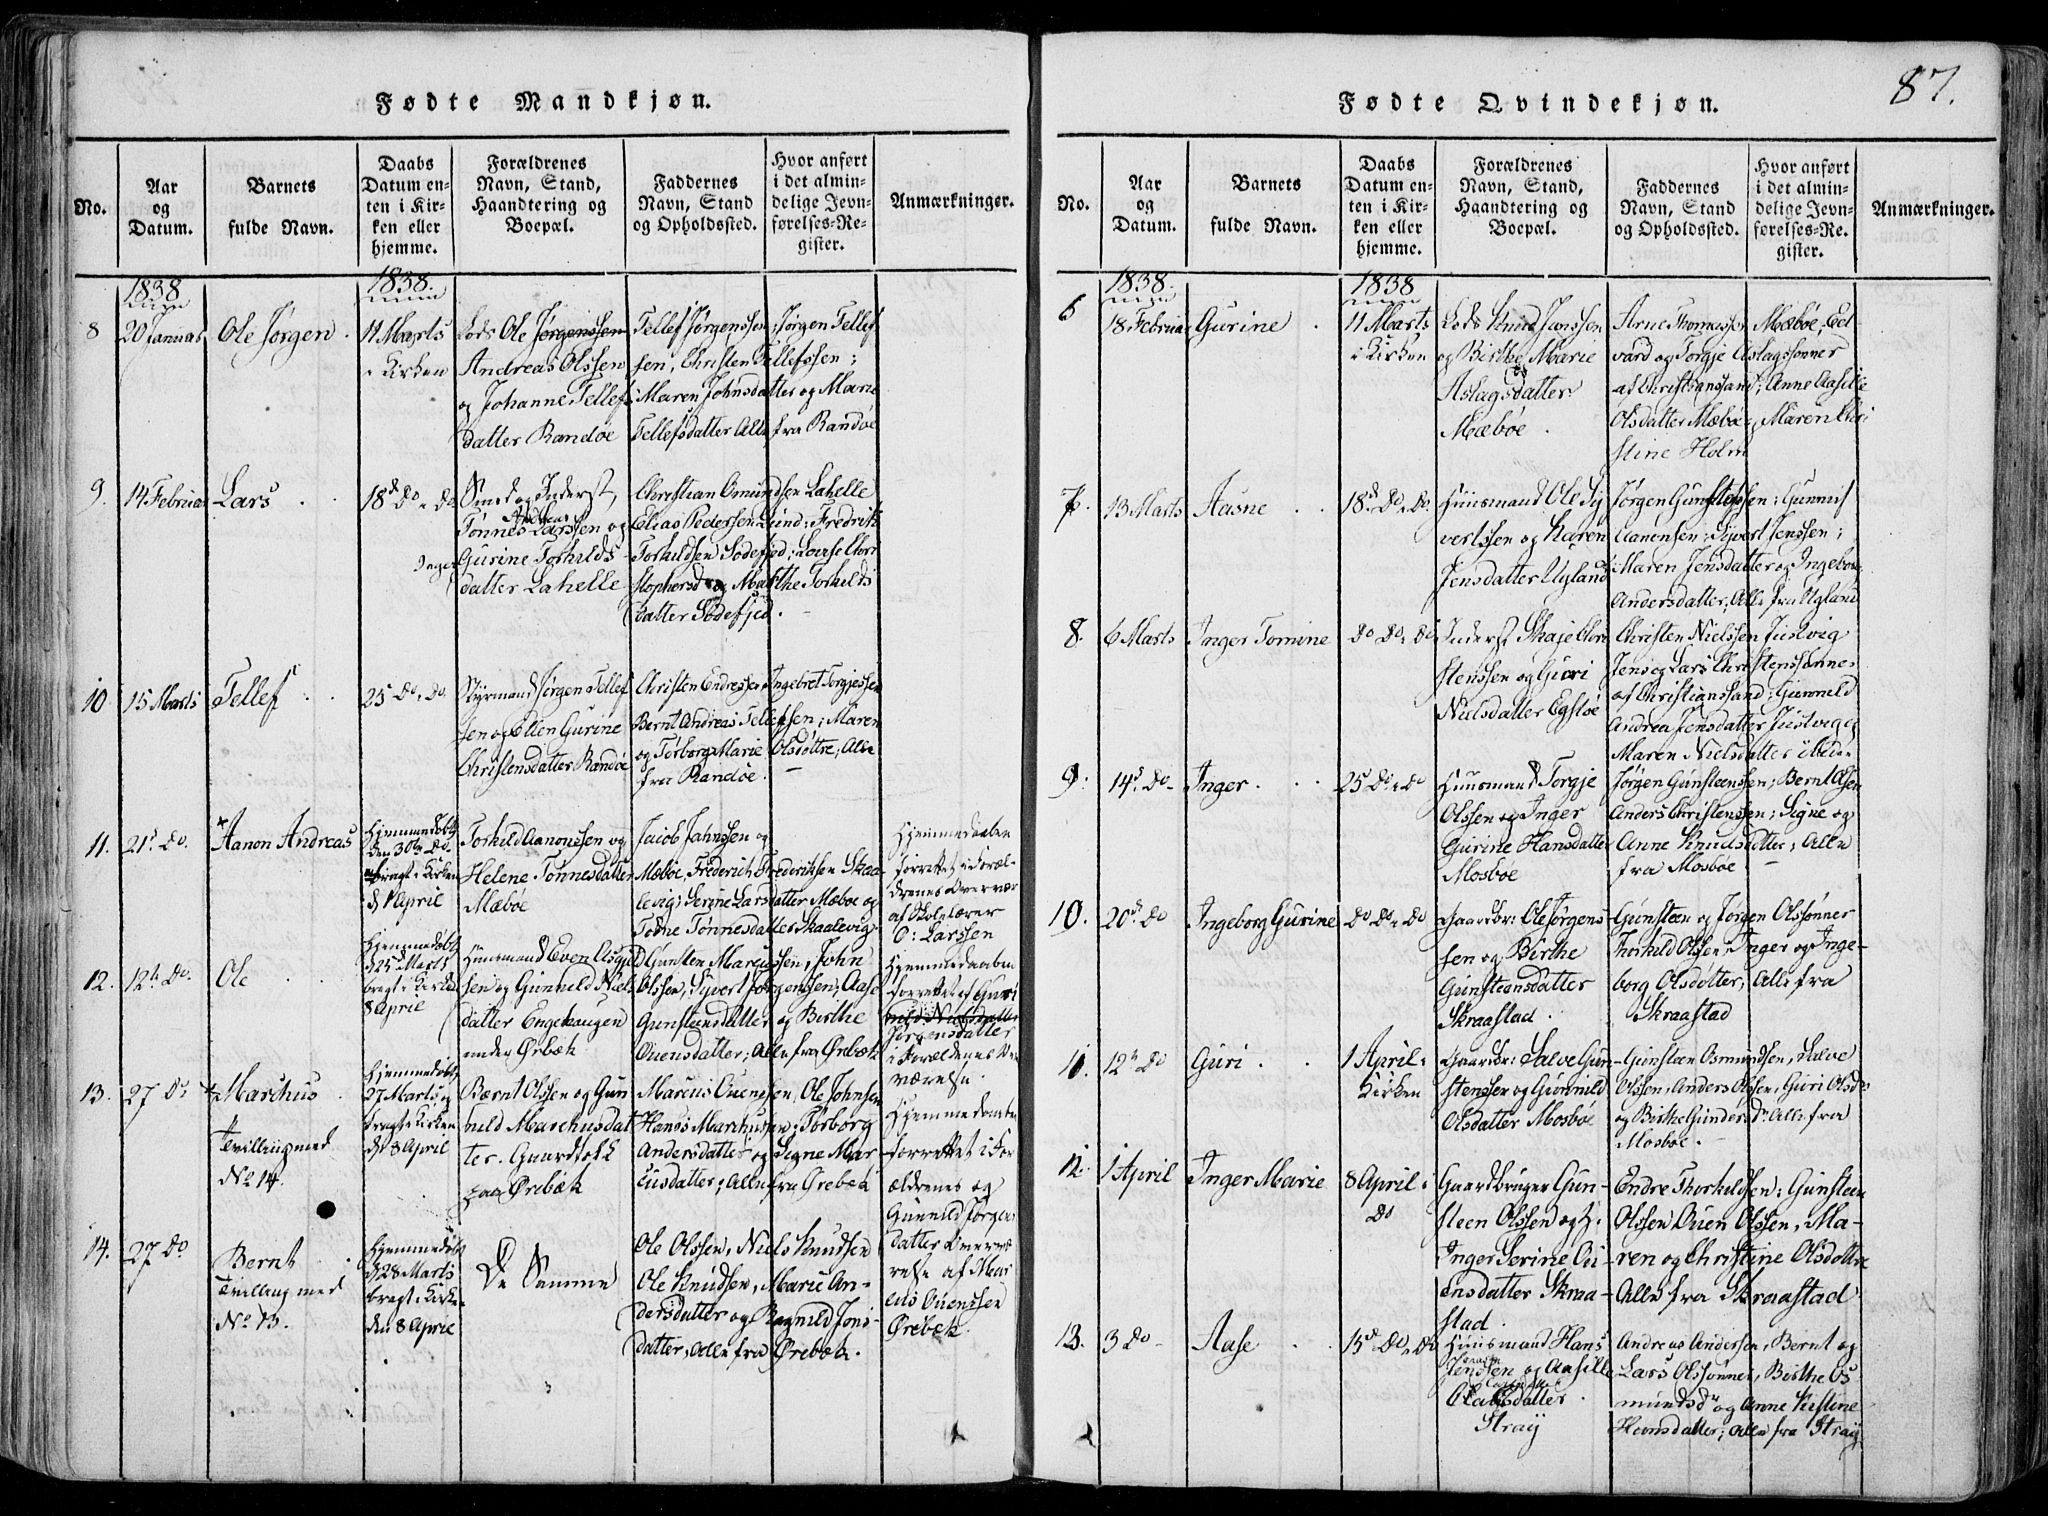 87.
Fødte Mandkjøn.
No.
Aar
og
Datum.
Barnets
fulde Navn.
Daabs
Datum en-
ten i Kir-
ken eller
hjemme.
Forældrenes
Navn, Stand,
Haandtering og
Boepæl.
Faddernes
Navn, Stand
og Opholdssted.
Hvor anført
i det almin-
delige Jevn-
førelses-Re-
gister.
Anmærkninger.
1838
1838.
8
20 Januar
Ole Jørgen
11 Marts
i Kirken
Lods Ole Jørgenssen
Andreas Olssen
og Johanne Tellefs
datter Randøe
Tellef Jørgenssen; Jørgen Tellef
sen, Christen Tellefssen;
Maren Johnsdatter og Marie
Tellefsdatter Alle fra Randøe
9.
14 Februar
Lars
18d Do i Do
Smed og Inderst,
Tønnes Larssen og
Gurine Torkilds
datter Lahelle
Christian Omundsen Lahelle
Elias Pedersen Lund; Fredrik
Torkildsen Sødefjed; Lovise Chri
stophersd og Marthe Torkilds
datter Sødefjed.
10
15 Marts
Tellef
25 Do i Do
Styrmand Jørgen Tellef
sen og Ellen Gurine
Christensdatter Randøe
Christen Endressen, Ingebret Torgjessen
Bernt Andreas Tellefsen; Maren
og Torborg Marie Olsdøttre; Alle
fra Randøe.
11.
21d Do.
Aanon Andreas
Hjemmedøbt
den 30te Do
bragt i Kirken
d 1 April
Torkild Aanonssen og
Helene Tønnesdatter
Mæbøe
Jacob Jahnssen og
Mæbøe, Frederich Frederiksen Skaa
levig; Serine Larsdatter Mæbøe og
Todne Tønnesdatter Skaalevig
Hjemmedaaben
forrettet i Foræl-
drenes Overvær
af Skolelærer
O: Larssen
12.
12te Do.
Ole
Hjemmedøbt
d 25 Marts
bragt i Kirken
8 April
Huusmand Even Asgud
sen og Gunnild Niels
datter Engehaugen
under Ørbek
Gunsten Marcussen, John
Olssen, Syvert Jørgenssen; Aase
Gunsteensdatter og Birthe
Ouensdatter; Alle fra Ørbek
Hjemmedaaben
forrettet af Guri
Jørgensdatter
i Forældrenes Over
værelse.
13.
27 Do
Marchus
Tvilling med
No 14.
Hjemmedøbt
27 Marts og
bragt i Kirken
d 8 April
Bærnt Olssen og Gun
huld Marchusdat
ter. Gaardfolk
paa Ørebæk
Marcus Ouensen, Ole Johnsen
Hans Marchussen; Torborg
Andersdatter og Signe Mar
cusdatter; Alle fra Ørebek
Hjemmedaaben
forrettet i For
ældrenes og
Gunnild Jørgens
datter Overvæ
relse af Mar
cus Ouenssen
Ørebæk.
14.
27 Do
Bernt
Tvilling med
No 13.
Hjemmedøbt
d 28 Marts
bragt i Kirke
den 8 April
De Samme
Ole Olssen, Niels Knudsen
Ole Knudsen, Marie An-
dersdatter og Ragnild Jons-
datter, Alle fra Ørebæk.
Fødte Qvindekjøn.
No.
Aar
og
Datum.
Barnets
fulde Navn.
Daabs
Datum en-
ten i Kir-
ken eller
hjemme.
Forældrenes
Navn, Stand,
Haandtering og
Boepæl.
Faddernes
Navn, Stand
og Opholdssted.
Hvor anført
i det almin-
delige Jevn-
førelses-Re-
gister.
Anmærkninger.
1838.
1838
6
18 Februar
Gurine
11 Marts
i Kirken
Lods Knud Jenssen
og Birthe Marie
Aslagsdatter
Mæbøe.
Arne Thomassen Mæbøe, Ed
vard og Torgje Aslagssønner
af Christianssand; Anne Aasille
Olsdatter Mæbøe; Maren Chri
stine Holm
7.
13 Marts
Aasne
18d Do i Do
Huusmand Ole Sy
vertssen og Karen
Jensdatter Ugland
Jørgen Gunstenssen; Gunnuf
Aanensen; Syvert Jenssen;
Maren Jensdatter og Ingeborg
Andersdatter, Alle fra Ugland
8.
6 Marts
Inger Tomine
Do Do i Do
Inderst Skaje Chri
stenssen og Guri
Nielsdatter Egsløe
Christen Nielssen Justvig
Jens og Lars Christenssønner
af Christianssand; Gunnild
Andrea Jensdatter Justvig og
Maren Nielsdatter ibid.
9.
14d Do
Inger.
25 Do i Do
Huusmand Torgje
Olssen og Inger
Gurine Hansdatter
Mosbøe
Jørgen Gunsteenssen; Bernt Olsen
Anders Christenssen; Signe og
Anne Knudsdatter, Alle
fra Mosbøe
10.
20d Do
Ingeborg Gurine
Do Do i Do
Gaardbr: Ole Jørgens
sen og Birthe
Gunsteensdatter
Skraastad.
Gunsteen og Jørgen Olssønner
Thorkild Olssen, Inger og Inge-
borg Olsdøtter, Alle fra
Skraastad
11.
12te Do
Guri
1 April i
Kirken
Gaardbr: Salve Gun-
stenssen og Gunnild
Olsdatter Mosbøe
Gunsteen Osmundsen, Salve
Olssen, Anders Olssen, Guri Olsdr
og Birthe Gundersdr Alle fra
Mosbøe.
12.
1 April
Inger Marie
8 April i
Do
Gaardbruger Gun-
steen Olssen og H.
Inger Serine Ou-
ensdatter Skraa-
stad.
Endre Thorkildsen; Gunsteen
Olssen Ouen Olssen, Ma-
ren og Christine Olsdøttre
Alle fra Skraastad
13.
3 Do
Aase
15d Do i Do
Huusmand Hans
Jenssen og Aasille
Olausdatter
Stray
Andreas Andersen, Bernt og
Lars Olssønner, Birthe Os
mundsdr og Anne Kistine
Hansdatter; Alle fra Stray